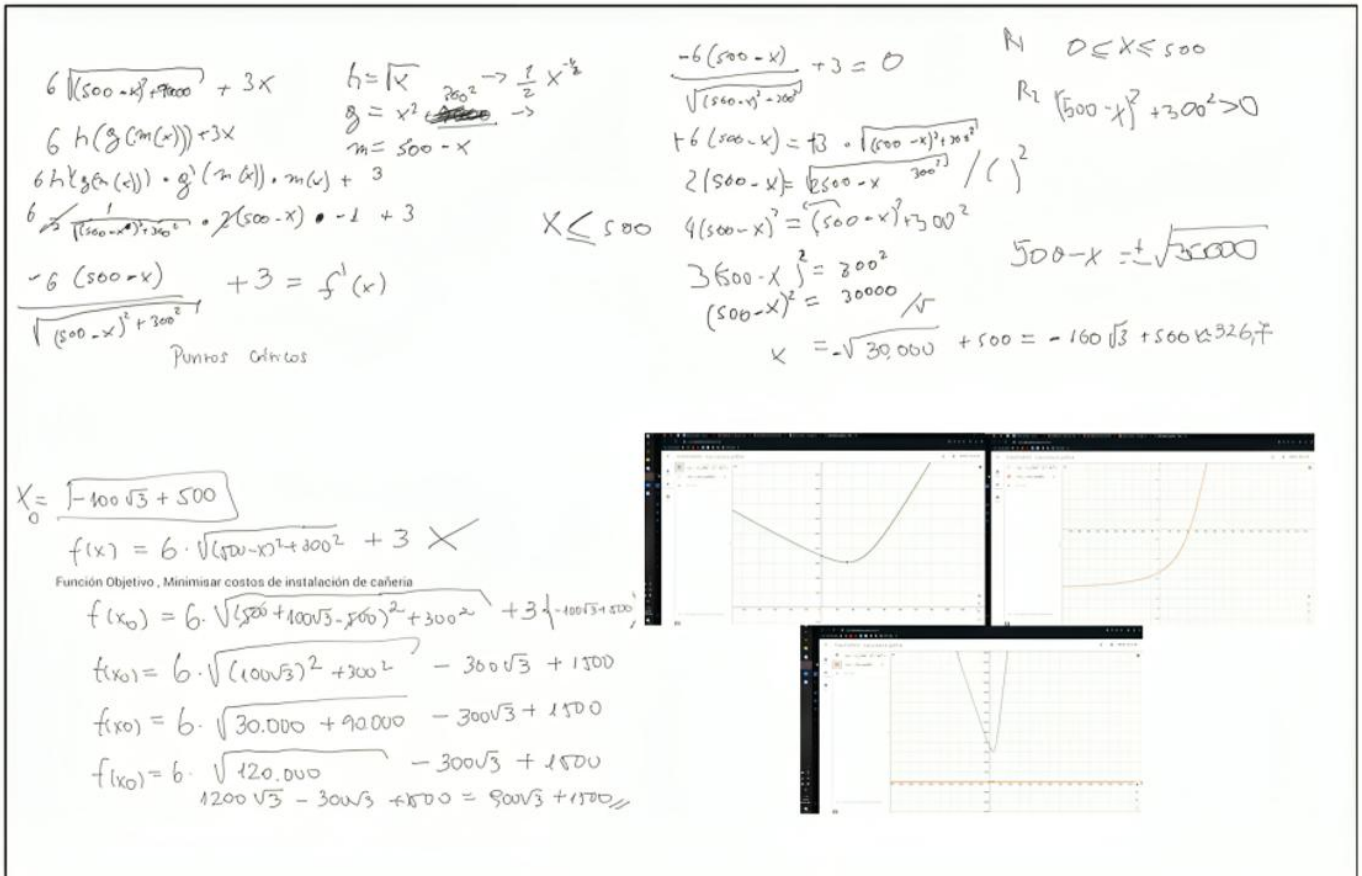 6 √((500-x)²+90000) + 3x
6 h(g(m(x))) + 3x
6 h'(g(m(x))) · g'(m(x)) · m(x) + 3
6 1/2 1/√((500-x)²+300²) · 2(500-x) · -1 + 3
-6 (500-x) / √((500-x)²+300²) + 3 = f'(x)
Puntos críticos
h = √x → 1/2 x^-1/2
g = x² 300² →
m = 500 - x
x ≤ 500
-6(500-x) / √((500-x)²-300²) + 3 = 0
+6(500-x) = +3 · √((500-x)²+300²)
2(500-x) = √(2500-x 300²) /( )²
4(500-x)² = (500-x)²+300²
3(500-x)² = 300²
(500-x)² = 30000 /√
x = -√30.000 + 500 = -100√3 + 500 ≈ 326,7
R1 0 ≤ x ≤ 500
R2 (500-x)² + 300² > 0
500-x = ±√30000
X₀ = -100√3 + 500
f(x) = 6 · √((500-x)²+300²) + 3 X
Función Objetivo , Minimisar costos de instalación de cañeria
f(x₀) = 6 · √((500+100√3-500)² + 300²) + 3(-100√3+500)
f(x₀) = 6 · √((100√3)² + 300²) - 300√3 + 1500
f(x₀) = 6 · √(30.000 + 90.000) - 300√3 + 1500
f(x₀) = 6 · √(120.000) - 300√3 + 1500
1200√3 - 300√3 + 1500 = 900√3 + 1500